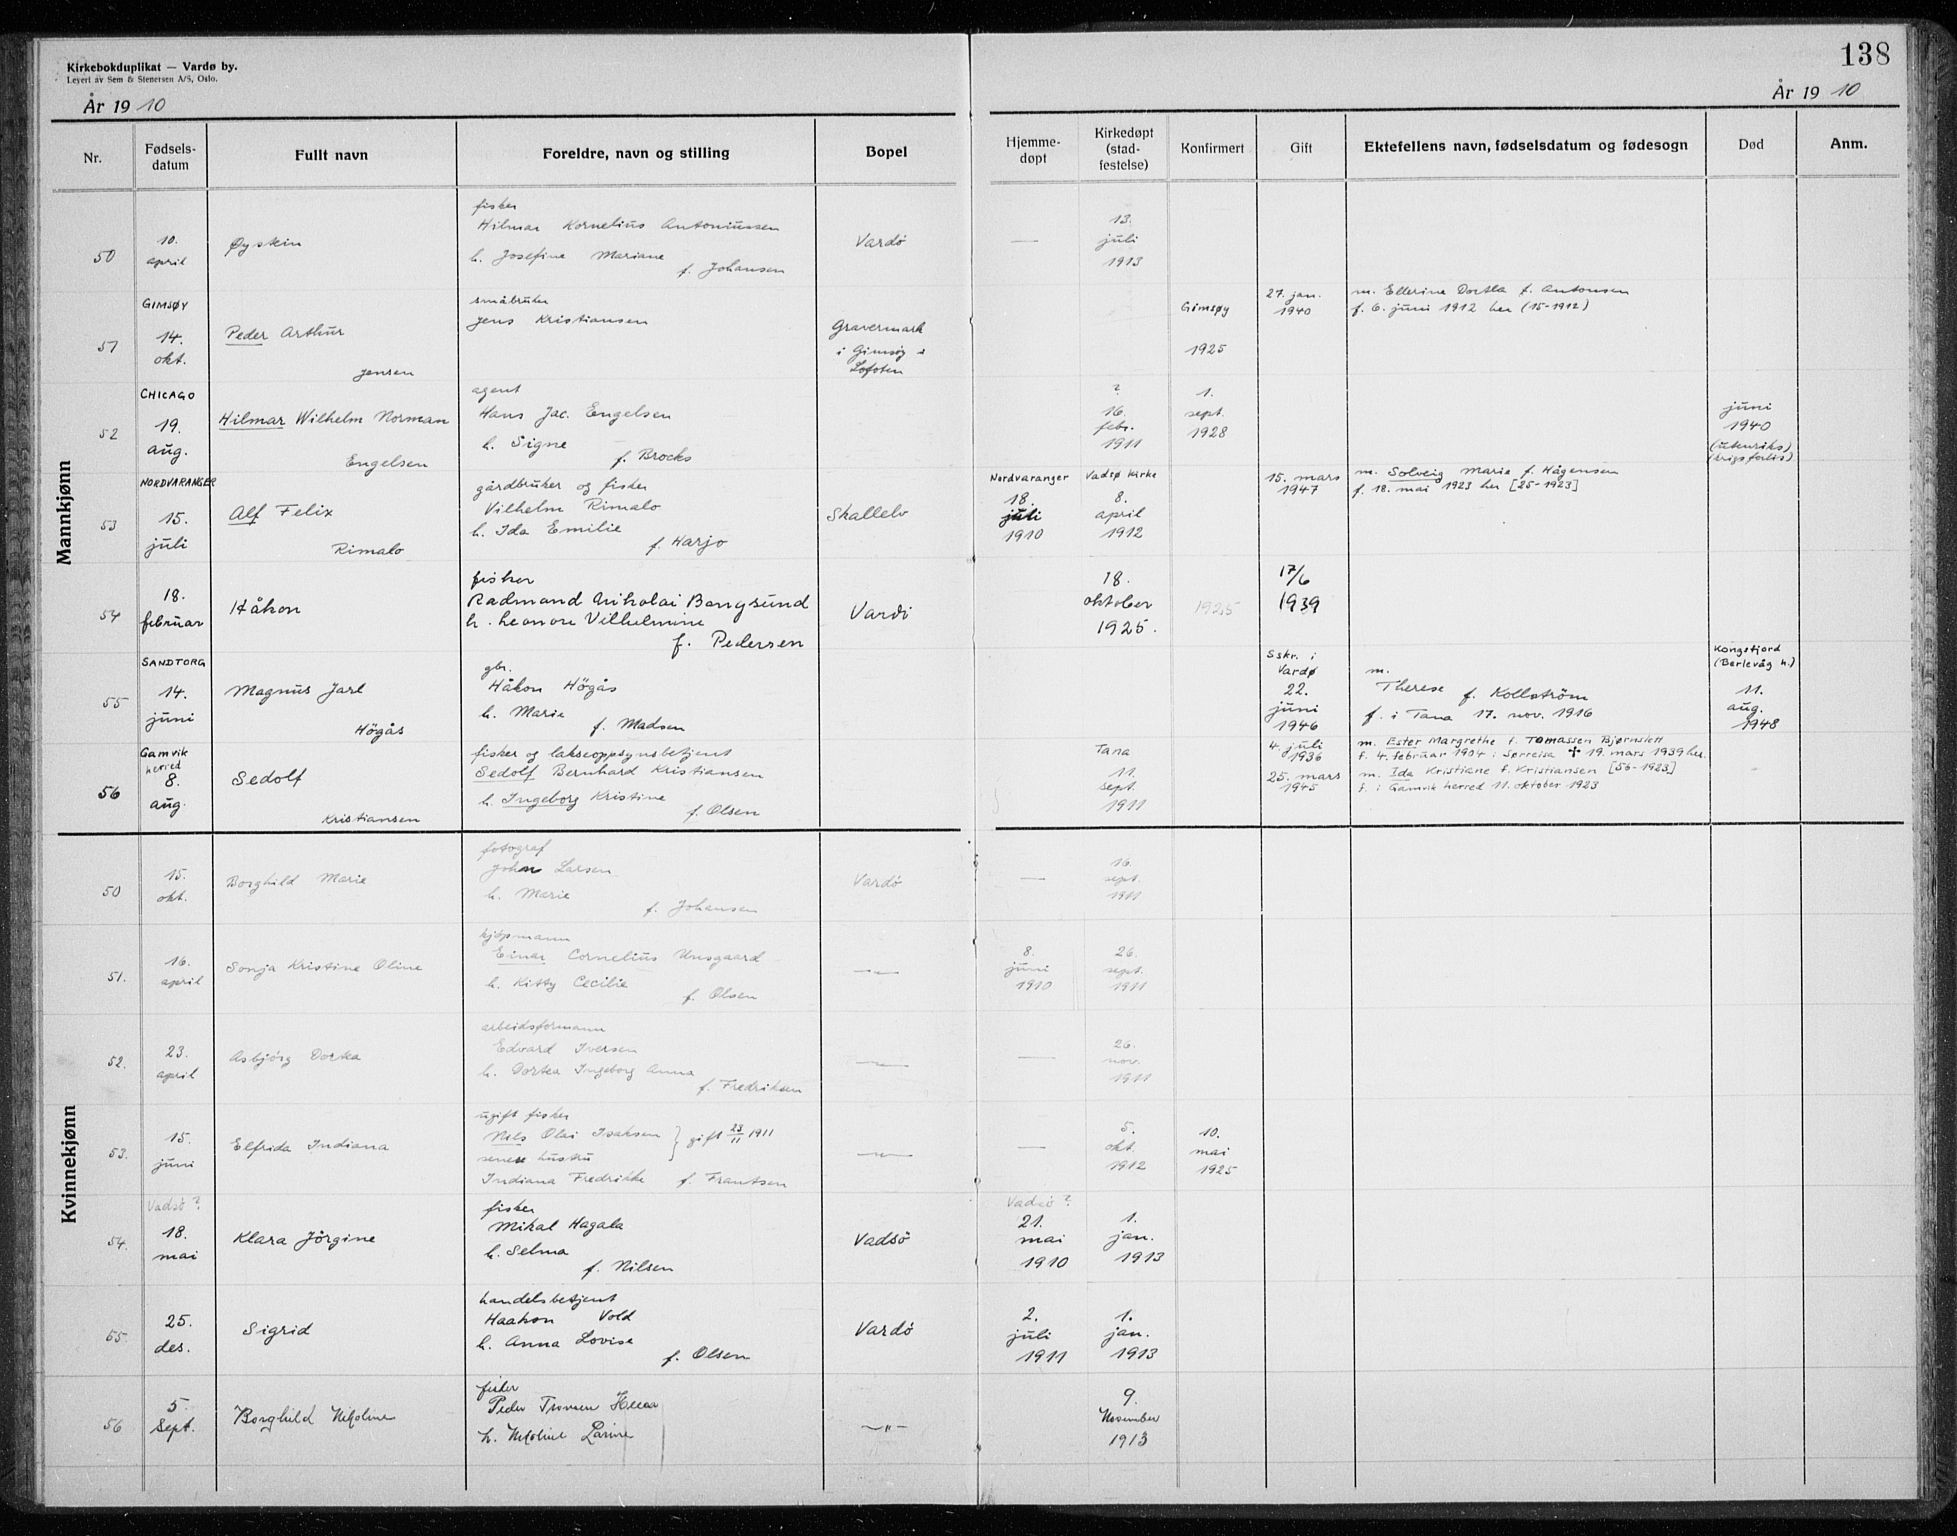 138
Kirkebokduplikat — Vardø by.
Levert av Sem & Stenersen A/S, Oslo.
År 19 10
År 19 10
Nr.
Fødsels-
datum
Fullt navn
Foreldre, navn og stilling
Bopel
Hjemme-
døpt
Kirkedøpt
(stad-
festelse)
Konfirmert
Gift
Ektefellens navn, fødselsdatum og fødesogn
Død
Anm.
Mannkjønn
50
10.
april
Øystein
fisker
Hilmar Kornelius Antoniussen
h. Josefine Mariane
f. Johansen
Vardö
—
13.
juli
1913
51
GIMSØY
14.
okt.
Peder Arthur
Jensen
småbruker
Jens Kristiansen
Gravermark
i Gimsøy i
Lofoten
Gimsøy
1925
27. jan.
1940
m. Ellerine Dortla f. Antonsen
f. 6. juni 1912 her (15-1912)
52
CHICAGO
19.
aug.
Hilmar Wilhelm Norman
Engelsen
agent
Hans Jac. Engelsen
h. Signe
f. Brocks
?
16.
febr.
1911
1.
sept.
1928
juni
1940
(utenriks)
(krigsforlis)
53
NORDVARANGER
15.
juli
Alf Felix
Rimalo
gårdbruker og fisker
Vilhelm Rimalo
h. Ida Emilie
f. Harjo
Skallelv
Nordvaranger
18.
juli
1910
Vadsø Kirke
8.
april
1912
15. mars
1947
m. Solveig Marie f. Hågensen
f. 18. mai 1923 her [25-1923]
54
18.
februar
Håkon
fisker
Radmand Nikolai Bangsund
h. Leonore Vilhelmine
f. Pedersen
Vardö
18.
oktober
1925.
1925
17/6
1939
55
SANDTORG
14.
juni
Magnus Jarl
Högås
gbr.
Håkon Högås
h. Marie
f. Madsen
Sskr. i
Vardø
22.
juni
1946
m.
Therese f. Kollström
f. i Tana 17. nov. 1916
Kongsfjord
(Berlevåg h.)
11.
aug.
1948
56
Gamvik
herred
8.
aug.
Sedolf
Kristiansen
fisker og lakseoppsynsbetjent
Sedolf Bernhard Kristiansen
h. Ingeborg Kristine
f. Olsen
Tana
11.
sept.
1911
4. juli
1936
25. mars
1945
m. Ester Margrethe f. Tomassen Bjørnslett
f. 4. februar 1904 i Sørreisa ✝ 19. mars 1939 her.
m. Ida Kristiane f. Kristiansen [56-1923]
f. i Gamvik herred 11. oktober 1923
Kvinnekjønn
50
15.
okt.
Borghild Marie
fotograf
John Larsen
h. Marie
f. Johansen
Vardö
—
16.
sept.
1911
51.
16.
april
Sonja Kristine Oline
kjöpmann
Einar Cornelius Unsgaard
h. Kitty Cecilie
f. Olsen
—"—
8.
juni
1910
26.
sept.
1911
52.
23.
april
Asbjörg Dortea
arbeidsformann
Edvard Iversen
h. Dortea Ingeborg Anna
f. Fredriksen
—"—
—
26.
nov.
1911
53.
15.
juni
Elfrida Indiana
ugift fisker
Nils Olai Isaksen } gift 23/11 1911
senere hustru
Indiana Fredrikke f. Frantsen
—"—
—
5.
okt.
1912
10.
mai
1925
54.
Vadsö?
18.
mai
Klara Jörgine
fisker
Mikal Hagala
h. Selma
f. Nilsen
Vadsö
Vadsö?
21.
mai
1910
1.
jan.
1913
55.
25.
des.
Sigrid
handelsbetjent
Haakon Vold
h. Anna Lovise
f. Olsen
Vardö
2.
juli
1911
1.
jan.
1913
56
5
Sept.
Borghild Nikoline
fisker
Peder
h. Nikoline
—"—
9.
November
1913